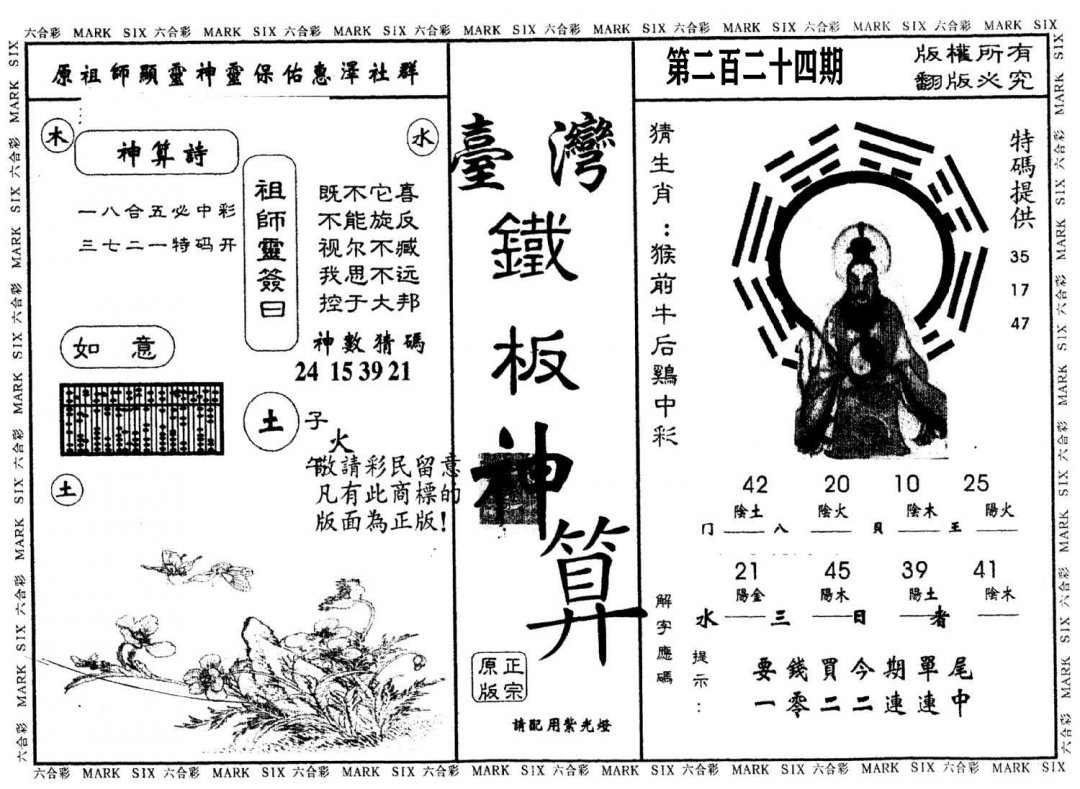 六合彩 MARK SIX 六合彩 MARK SIX 六合彩 MARK SIX 六合彩 MARK SIX 六合彩 MARK SIX 六合彩 MARK SIX 六合彩 MARK SIX 六合彩 MARK SIX
原祖師顯靈神靈保佑惠澤社群
木
神算詩
水
一八合五必中彩
三七二一特码开
祖師靈簽曰
既不它喜
不能旋反
视尔不臧
我思不远
控于大邦
如意
神數猜碼
24 15 39 21
土
子
火
午
敬請彩民留意
凡有此商標的
版面為正版!
土
臺灣
鐵
板
神
算
正宗
原版
請配用紫光燈
第二百二十四期
版權所有
翻版必究
猜生肖:猴前牛后鷄中彩
特碼提供
35
17
47
42 20 10 25
陰土 陰火 陰木 陽火
门 八 貝 王
21 45 39 41
陽金 陽木 陽土 陰木
水 三 日 者
解字應碼
提示:
要錢買今期單尾
一零二二連連中
六合彩 MARK SIX 六合彩 MARK SIX 六合彩 MARK SIX 六合彩 MARK SIX 六合彩 MARK SIX 六合彩 MARK SIX 六合彩 MARK SIX 六合彩 MARK SIX